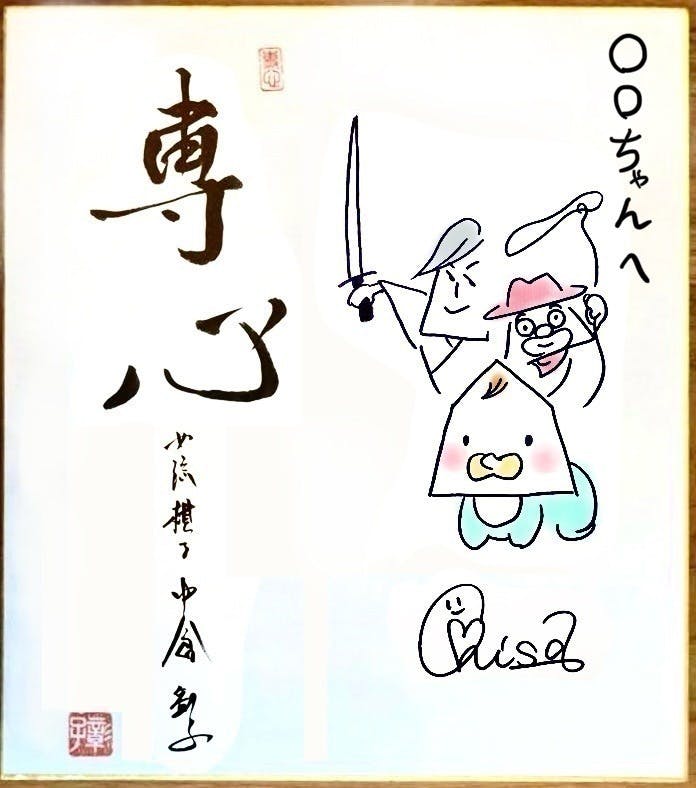 ○○ちゃんへ
専心
女流棋士 中倉彰子
彰子